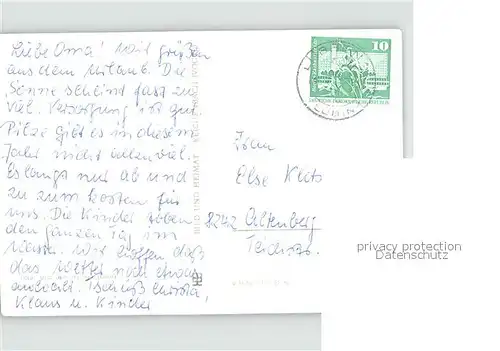 Liebe Oma! Wir grüßen
aus dem Urlaub. Die
Sonne scheint fast zu
viel. Versorgung ist gut
Pilze gibt es in diesem
Jahr nicht allzuviel.
Es langt nur ab und
zu zum kosten für
uns. Die Kinder toben
den ganzen Tag im
Wasser. Wir hoffen daß
das Wetter noch etwas
aushält. Tschüß Christa,
Klaus u. Kinder
10
DEUTSCHE DEMOKRATISCHE REPUBLIK
BILD UND HEIMAT
Frau
Else
8242 Altenberg
privacy protection
Datenschutz